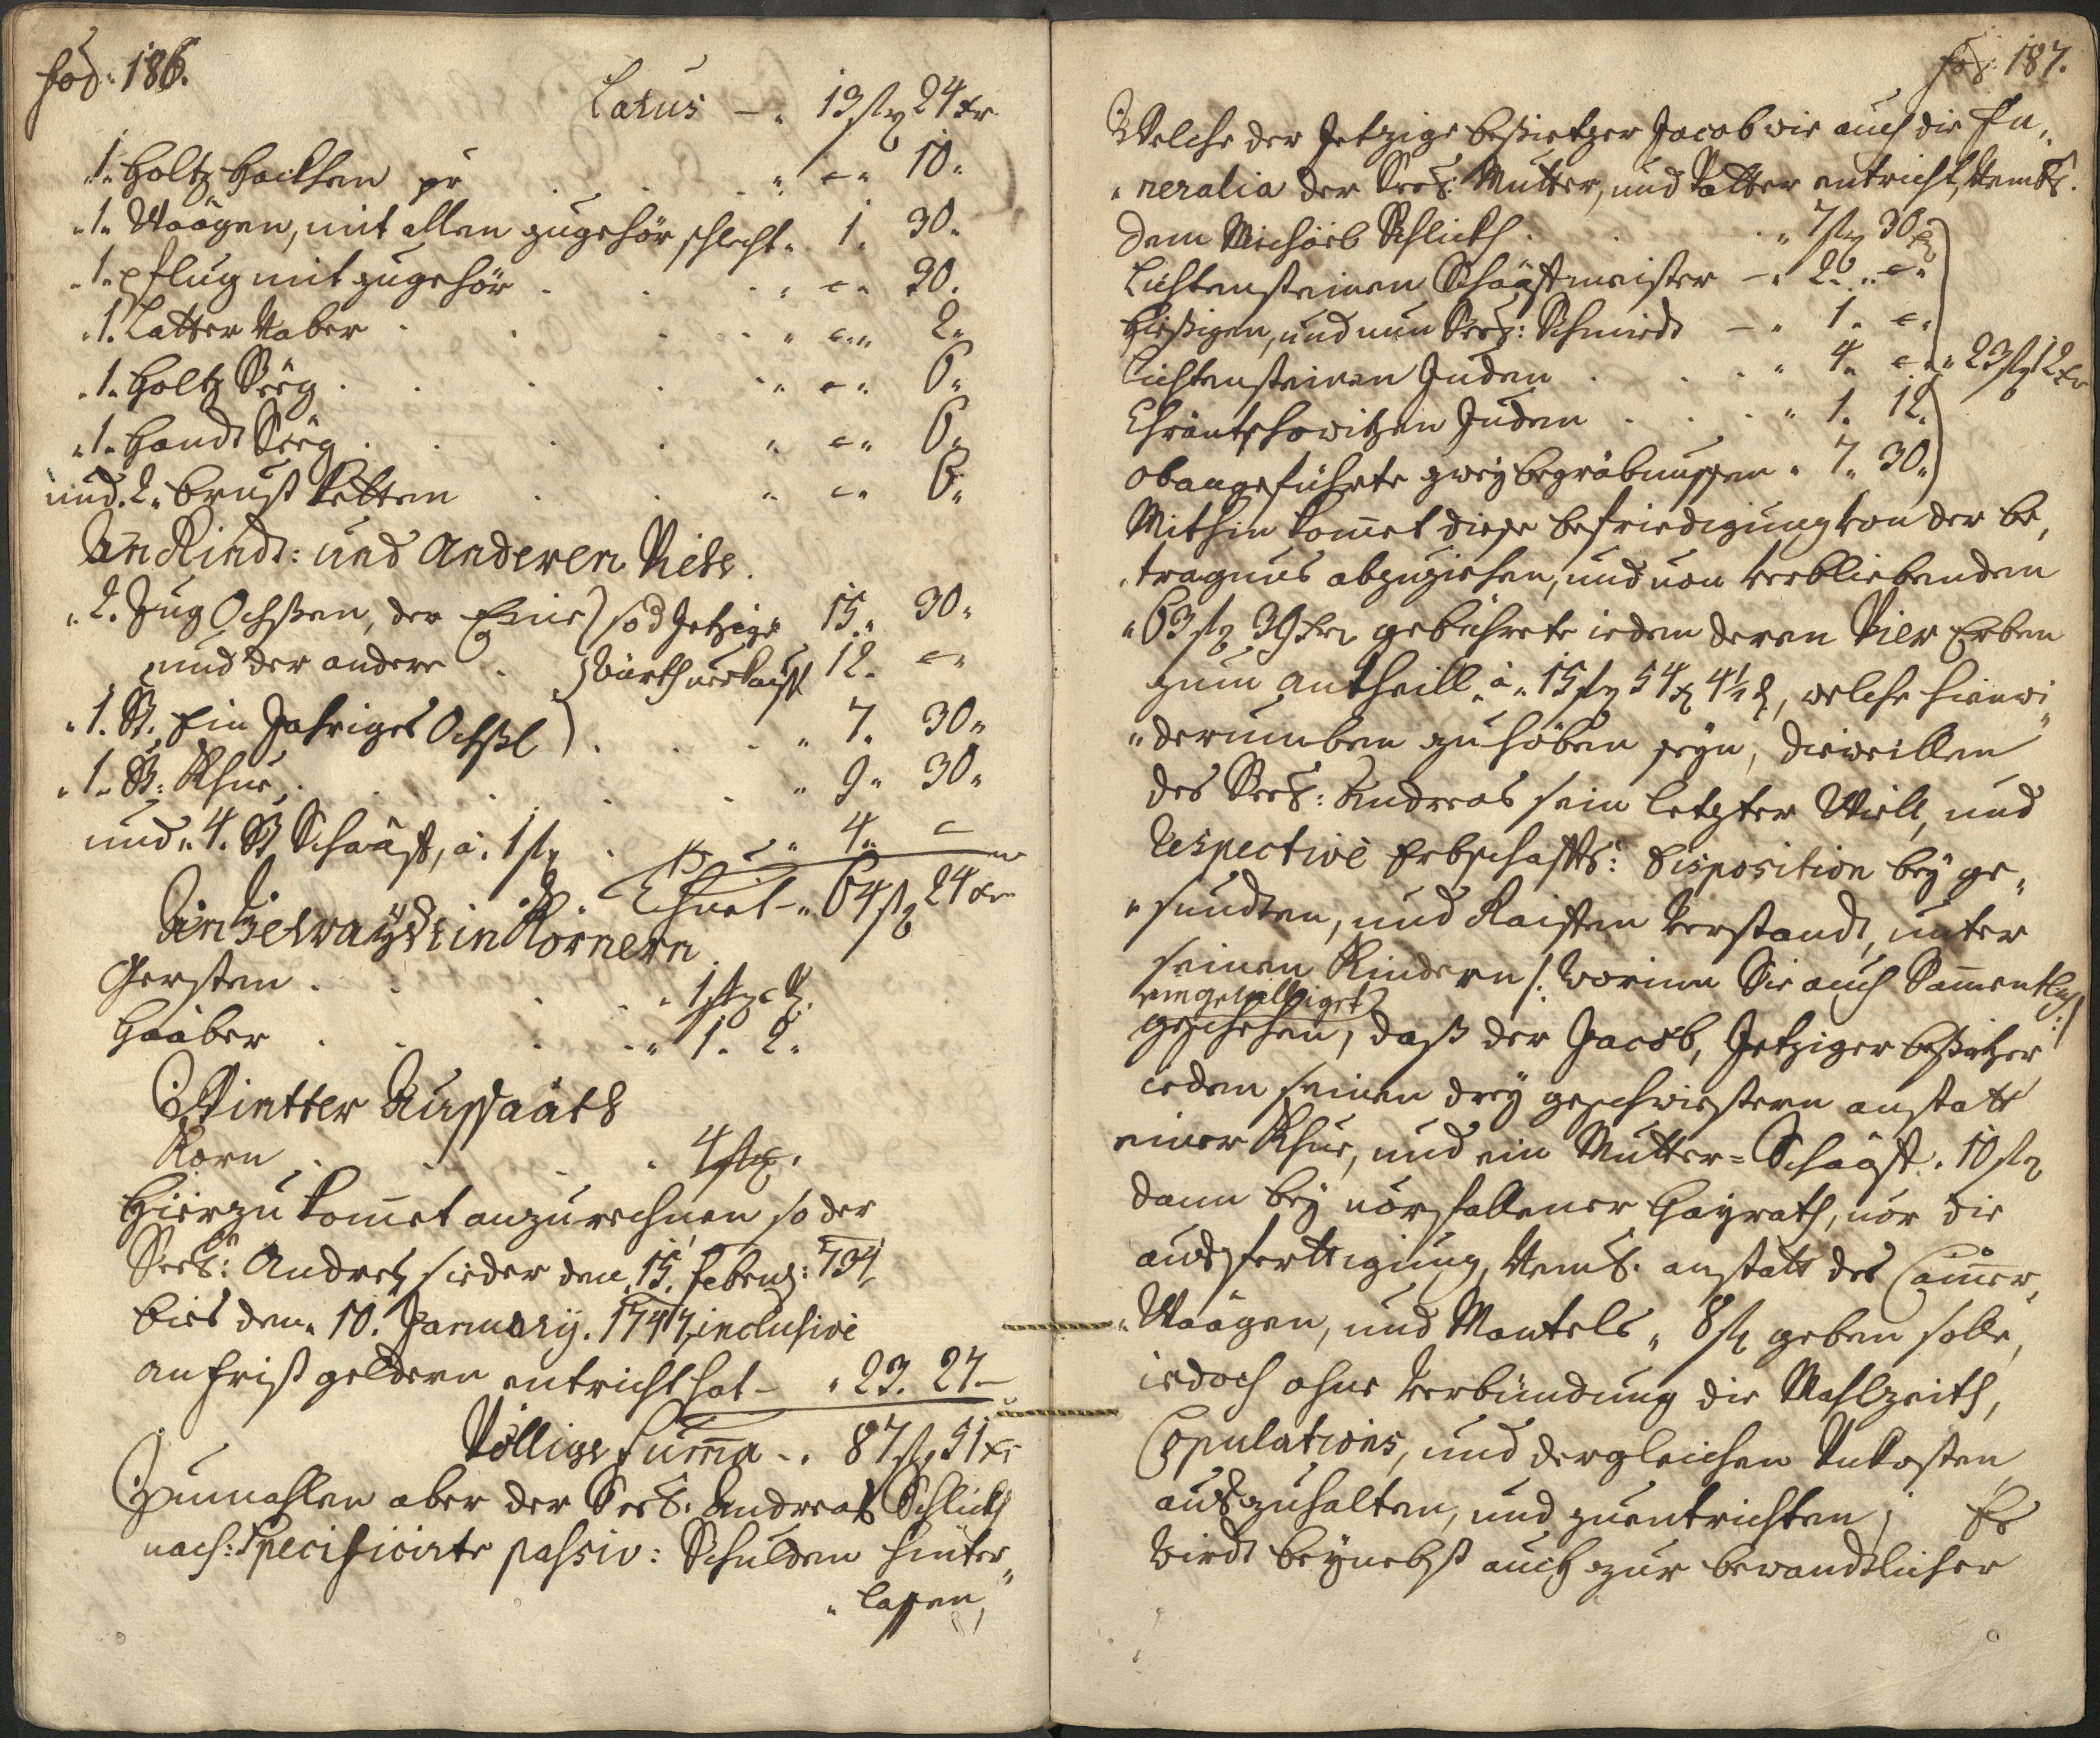 fol: 186.
Latus — „ 13 fl 24 xr
„1. Holtz Hackhen pr . . . „ — „ 10 „
„1„ Waagen, mit allen zugehör schlecht „ 1. 30 „
„1„ pflug mit zugehör . . . „ — „ 30.
„1. Latter Naber . . . „ — „ 2„
„1. Holtz Seeg . . . „ — „ 6„
„1„ Handt Seeg . . . „ — „ 6„
und. 2„ brust ketten . . „ — „ 6„
An Rindt: und anderen Viehe.
„2. Zug Ochßen, der Eine } so d Jetzige 15„ 30„
und der andere . } Würth erkaufft 12. — „
„1. St. Ein Jahriges Ochßl ) . . . „ 7. 30„
„1„ St: Khue . . . „ 9„ 30„
und „4. St Schaaff, à. 1 fl . . „ 4„ —
Thuet — „ 64 fl 24 xr
An Getraydt in Körnern
Gersten . . . „ 1
Haaber . . . „ 1. 2„
Wintter Aussaath
Korn . . . . 4
Hierzu kom̄et anzurechnen so der
Seel: Andreß sieder den 15. februarÿ: 734
bies den „ 10. Januarÿ. 1747, inclusive
an frist geldern entricht hat — „ 23. 27 —
Völlige Sum̄a — „ 87 fl 51 xr
Zumahlen aber der Seel. Andreas Schlickh
nach: Specificirte passiv: Schulden hinter„
„lassen,
fol: 187.
Welche der Jetzige besietzer Jacob wie auch die Fu„
„neralia der Seel: Mutter, und Vatter entricht, Nembl.
dem Michael Schlickh . . . „ 7 fl 30 xr
Lichtensteinen Schaaffmeister — „ 2„ „ — „
hießigen, und nun Seel: Schmiedt — „ 1„ — „
Lichtensteinen Juden . . . „ 4„ — „ „ 23 fl 12 xr
Juden . . . „ 1. 12.
obangeführte zweÿ begräbnussen „ 7„ 30„
Mithin kom̄et diese befriedigung von der be„
„tragnus abzuziehen, und von verbliebenden
„63 fl 39 xr gebührete ieden deren Vier Erben
zum antheill „ à „ 15 fl 54 x 4½ d, welche hienwi„
„derumben zuhöben seyn, dieweillen
des Seel: Andreas sein letzter Will, und
respective Erbschaffts: Disposition beÿ ge„
„sundten, und Raiffen Verstandt, unter
seinen Kindern /: Worinn Sie auch Sam̄entlich
eingewilliget
geschehen, :/ daß der Jacob, Jetziger besitzer
ieden seinen dreÿ geschwiestern anstatt
einer Khue, und ein Mutter = Schaaff „ 10 fl
dann beÿ vorfallener Heÿrath, vor die
ausfertigung, Nembl. anstatt des Cam̄er„
„Waagen, und Mantels „ 8 fl geben solle,
iedoch ohne Verbündung die Mahlzeith,
Copulations, und dergleichen Vnkosten
auszuhalten, und zuentrichten; Es
wirdt beÿnebst auch zur bewandtlicher